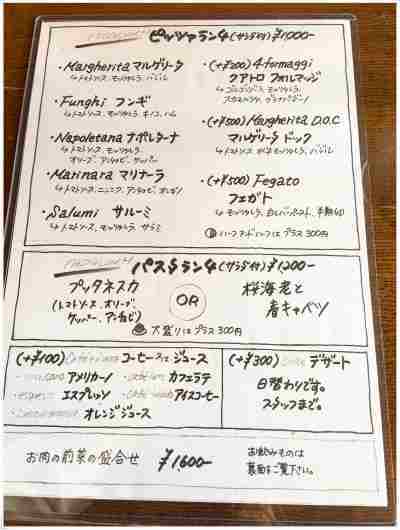 ピッツァランチ(サラダ付) ¥1000-
・Margherita マルゲリータ
↳トマトソース、モッツァレラ、バジル
・Funghi フンギ
↳トマトソース、モッツァレラ、キノコ、ハム
・Napoletana ナポレターナ
↳トマトソース、モッツァレラ、
オリーブ、アンチョビ、ケッパー
・Marinara マリナーラ
↳トマトソース、ニンニク、アンチョビ、オレガノ
・Salumi サルーミ
↳トマトソース、モッツァレラ、サラミ
・(+¥200) 4formaggi
クアトロ フォルマッジ
↳ゴルゴンゾーラ、モッツァレラ、
・(+¥500) Margherita D.O.C
マルゲリータ ドック
↳トマトソース、水牛モッツァレラ、バジル
・(+¥500) Fegato
フェガト
↳モッツァレラ、白レバーペースト、半熟卵
ハーフアンドハーフはプラス300円
パスタランチ(サラダ付) ¥1200-
プッタネスカ
(トマトソース、オリーブ、
ケッパー、アンチョビ)
OR
桜海老と
春キャベツ
大盛りはプラス300円
(+¥100) コーヒー or ジュース
アメリカーノ
カフェラテ
エスプレッソ
アイスコーヒー
オレンジジュース
(+¥300) デザート
日替わりです。
スタッフまで。
お肉の前菜の盛合せ ¥1600-
お飲みものは
裏面をご覧下さい。